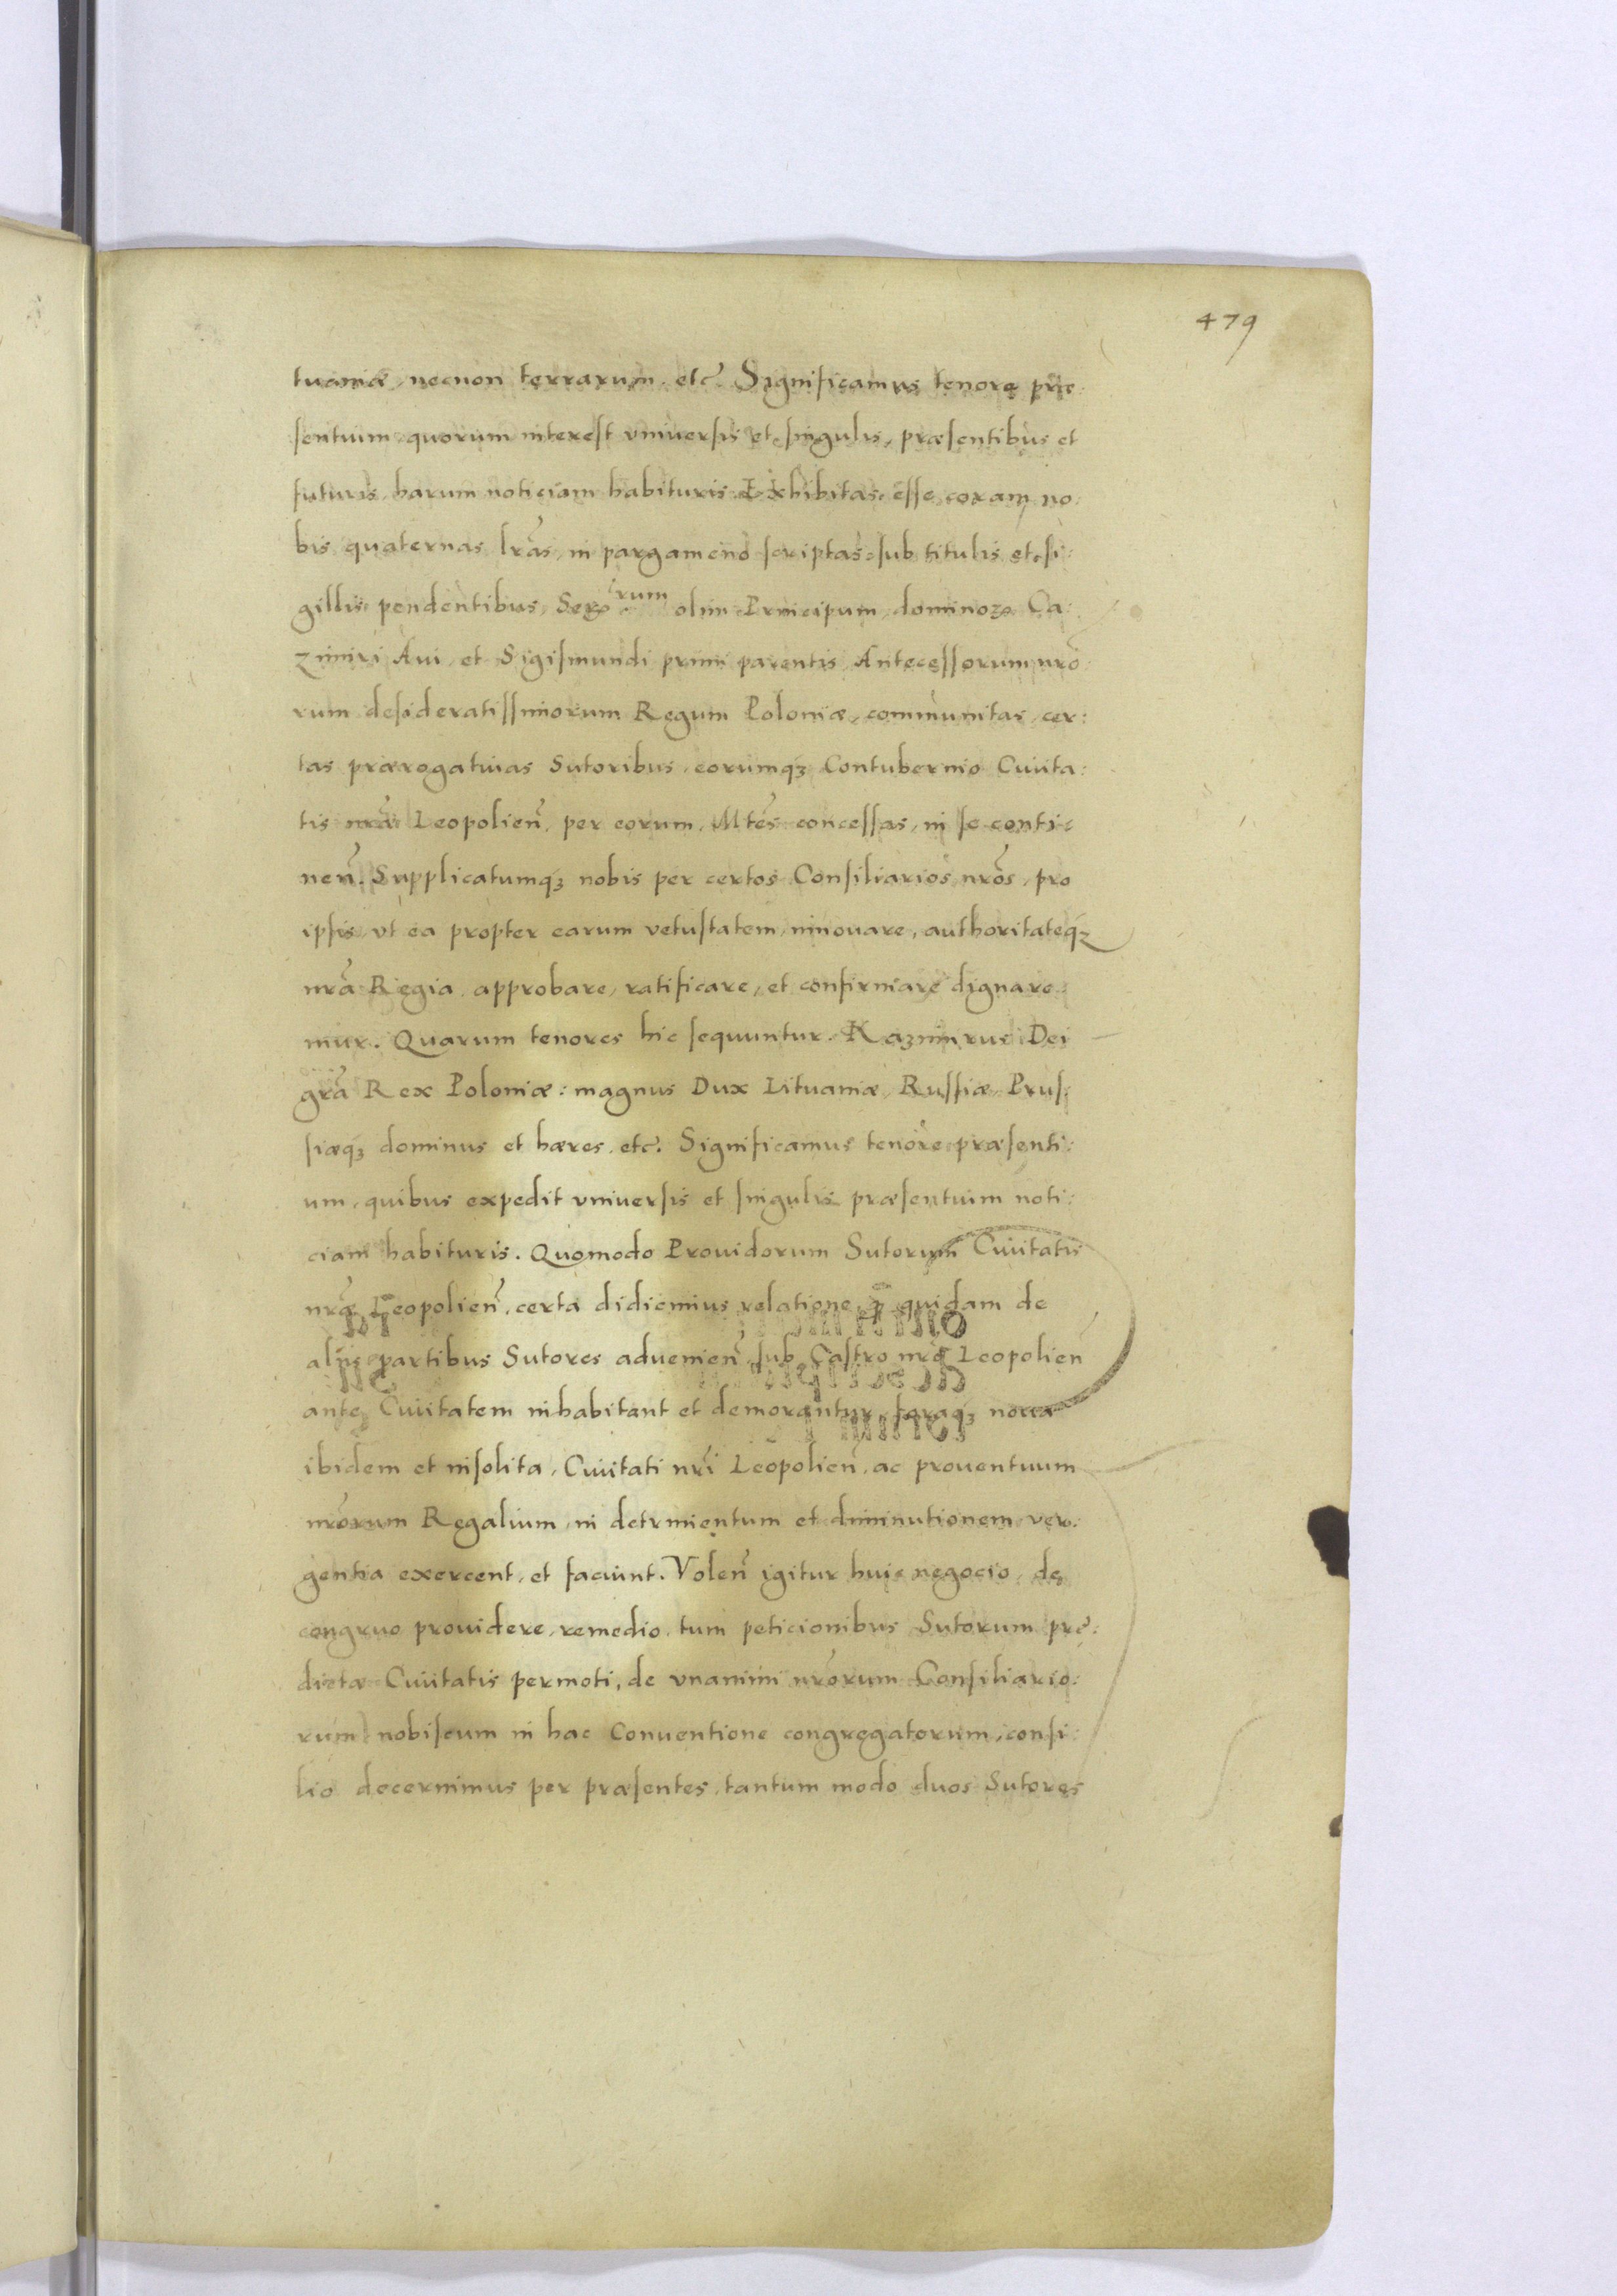 479
tuaniæ, necnon terrarum, etc̃. Significamus tenore præ:
sentium quorum interest vniuersis et singulis, præsentibus et
futuris, harum noticiam habituris. Exhibitas esse coram no:
bis quaternas lr̃as, in pargameno scriptas, sub titulis et si:
gillis pendentibus, Ser rum olim Principum, dominoꝝ Ca:
zimiri Aui, et Sigismundi primi parentis, Antecessorum nr̃o:
rum desideratissimorum Regum Poloniæ, communitas, cer:
tas prærogatiuas Sutoribus, eorumqꝫ Contubernio Ciuita:
tis nr̃æ Leopolien̄, per eorum, Mtẽs concessas, in se conti:
nen̄. Supplicatumqꝫ nobis per certos Consiliarios nr̃os, pro
ipsis, vt ea propter earum vetustatem, innouare, authoritateqꝫ
nr̃a Regia, approbare, ratificare, et confirmare dignare:
mur. Quarum tenores hic sequuntur. Kazimirus Dei
gr̃a Rex Poloniæ: magnus Dux Lituaniæ, Russiæ, Prus:
siæqꝫ dominus et hæres, etc̃. Significamus tenore præsenti:
um, quibus expedit vniuersis et singulis præsentium noti:
ciam habituris. Quomodo Prouidorum Sutorum Ciuitatis
nr̃æ Leopolien̄, certa didicimus relatione, qꝫ quidam de
alijs partibus Sutores aduenien̄, sub Castro nr̃o Leopolien̄
ante Ciuitatem inhabitant et demorantur, foraqꝫ noua
ibidem et insolita, Ciuitati nr̃i Leopolien̄, ac prouentuum
nr̃orum Regalium, in detrimentum et diminutionem ver:
gentia exercent, et faciunt. Volen̄ igitur huic negocio, de
congruo prouidere, remedio, tum peticionibus Sutorum præ:
dictæ Ciuitatis permoti, de vnanimi nr̃orum Consiliario:
rum nobiscum in hac Conuentione congregatorum, consi:
lio decernimus per præsentes, tantum modo duos Sutores